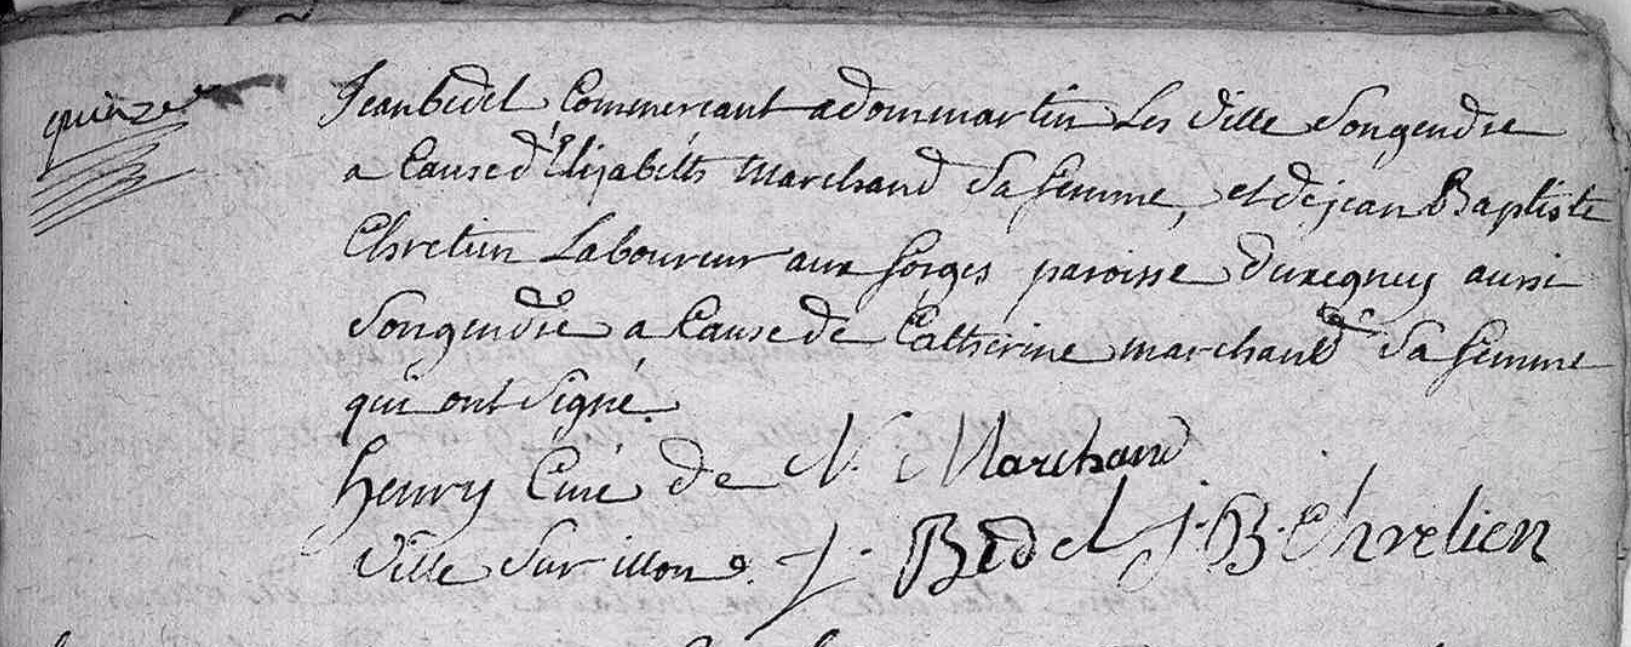 quinze
Jean bedel Commercant a dommartin Les Ville Son gendre
a Cause d'Elizabeth Marchand Sa femme, et de jean Baptiste
Chretien Laboureur aux forges paroisse d'uxegney aussi
Son gendre a Cause de Catherine marchand Sa femme
qui ont Signé.
henry Curé de N. Marchand
Ville Sur illon. J. Bedel J. B. Chretien